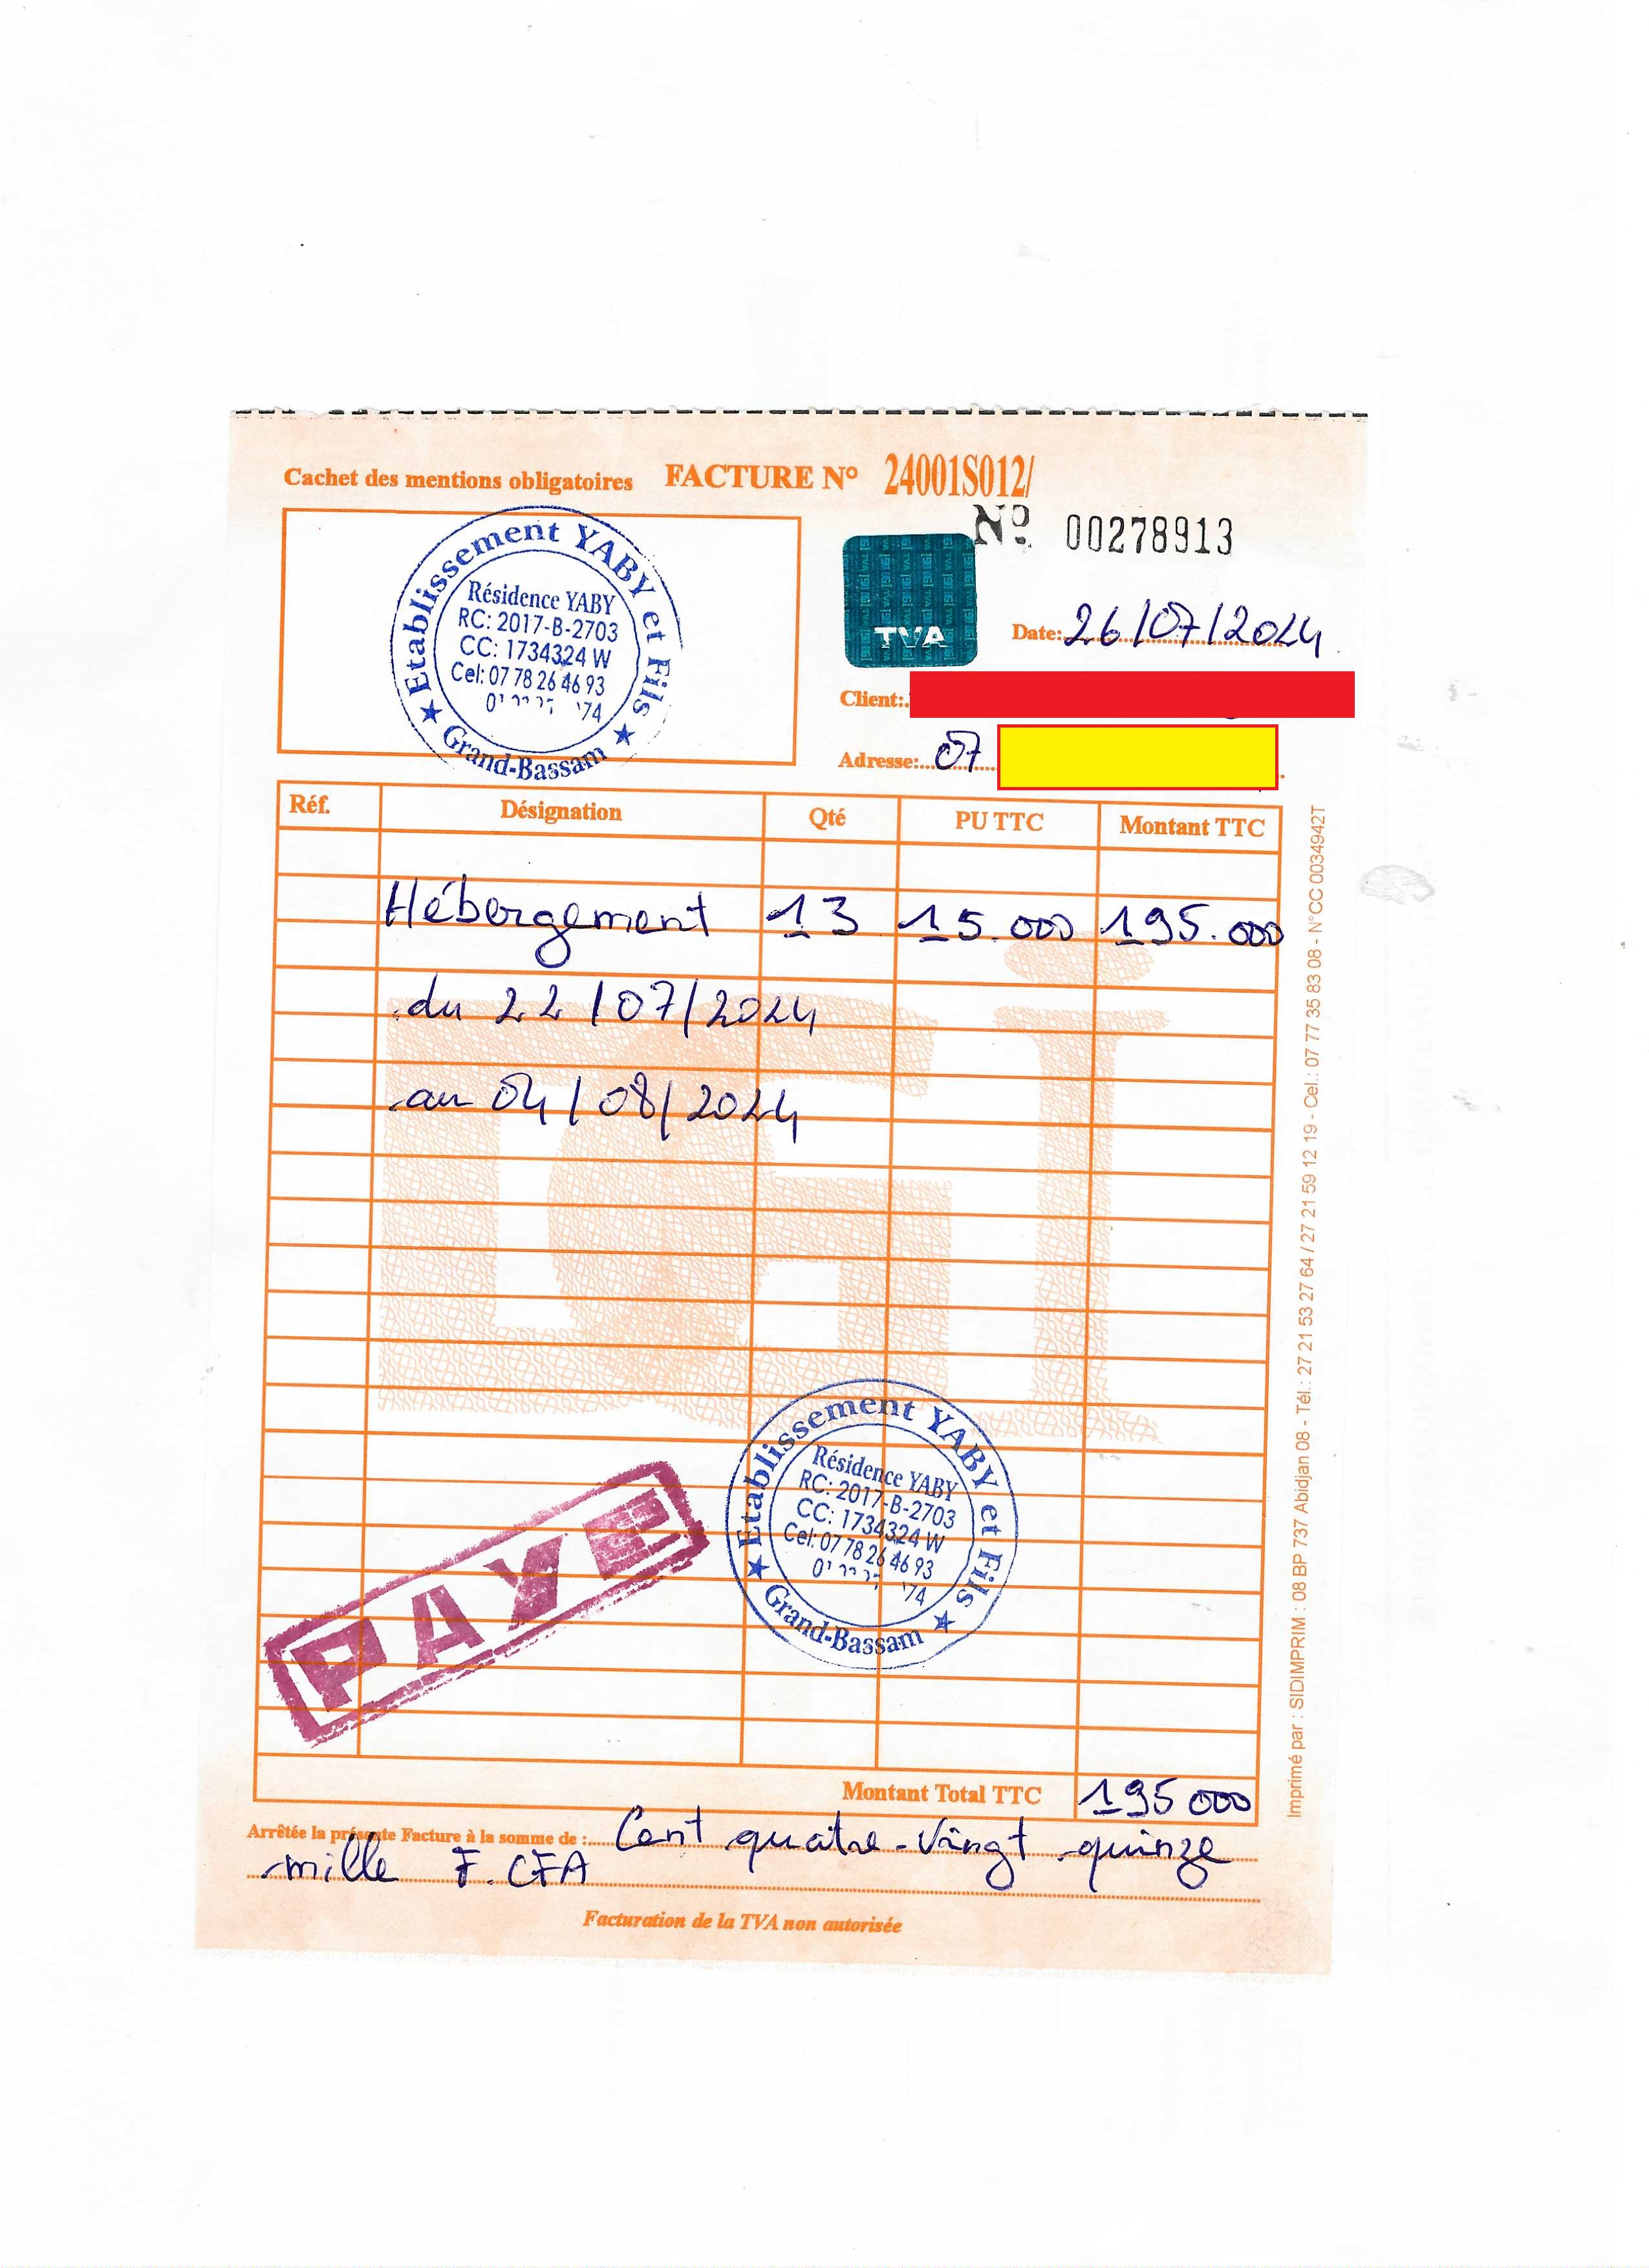 Cachet des mentions obligatoires FACTURE N° 24001S012/
N° 00278913
Etablissement YABY et Fils
Résidence YABY
RC: 2017-B-2703
CC: 1734324 W
Cel: 07 78 26 46 93
74
★ Grand-Bassam ★
TVA
Date: 26/07/2024
Client:
Adresse: 07
Réf. Désignation Qté PU TTC Montant TTC
Hébergement 13 15.000 195.000
du 22/07/2024
au 04/08/2024
DGI
Etablissement YABY et Fils
Résidence YABY
RC: 2017-B-2703
CC: 1734324 W
Cel: 07 78 26 46 93
74
★ Grand-Bassam ★
PAYE
Montant Total TTC 195 000
Arrêtée la présente Facture à la somme de : Cent quatre-vingt quinze
mille F.CFA
Facturation de la TVA non autorisée
Imprimé par : SIDIMPRIM : 08 BP 737 Abidjan 08 - Tél.: 27 21 53 27 64 / 27 21 59 12 19 - Cel.: 07 77 35 83 08 - N°CC 0034942T